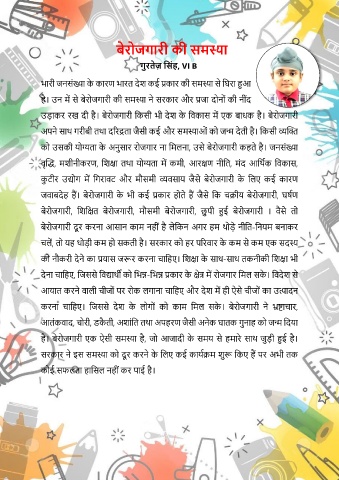 बेरोजगारी की समस्पा
गुरतेज़ सिंह, VI B
भारी जनसंख्या के कारण भारत देश कई प्रकार की समस्पा से घिरा हुआ
है। उन में से बेरोजगारी की समस्पा ने सरकार और प्रजा दोनों की नींद
उड़ाकर रख दी है। बेरोजगारी किसी भी देश के विकास में एक बाधक है। बेरोजगारी
अपने साथ गरीबी तथा दरिद्रता जैसी कई और समस्पाओं को जन्म देती है। किसी व्यक्ति
को उसकी योग्यता के अनुसार रोजगार ना मिलना, उसे बेरोजगारी कहते है। जनसंख्या
वृद्धि, मशीनीकरण, शिक्षा तथा योग्यता में कमी, आरक्षण नीति, मंद आर्थिक विकास,
कुटीर उद्योग में गिरावट और मौसमी व्यवसाय जैसे बेरोजगारी के लिए कई कारण
जवाबदेह हैं। बेरोजगारी के भी कई प्रकार होते हैं जैसे कि चक्रीय बेरोजगारी, घर्षण
बेरोजगारी, शिक्षित बेरोजगारी, मौसमी बेरोजगारी, छुपी हुई बेरोजगारी । वैसे तो
बेरोजगारी दूर करना आसान काम नहीं है लेकिन अगर हम थोड़े नीति-नियम बनाकर
चलें, तो यह थोड़ी कम हो सकती है। सरकार को हर परिवार के कम से कम एक सदस्य
की नौकरी देने का प्रयास जरूर करना चाहिए। शिक्षा के साथ-साथ तकनीकी शिक्षा भी
देना चाहिए, जिससे विद्यार्थी को भिन्न-भिन्न प्रकार के क्षेत्र में रोजगार मिल सके। विदेश से
आयात करने वाली चीजों पर रोक लगाना चाहिए और देश में ही ऐसे चीजों का उत्पादन
करना चाहिए। जिससे देश के लोगों को काम मिल सके। बेरोजगारी ने भ्रष्टाचार,
आतंकवाद, चोरी, डकैती, अशांति तथा अपहरण जैसी अनेक घातक गुनाह को जन्म दिया
है। बेरोजगारी एक ऐसी समस्पा है, जो आजादी के समय से हमारे साथ जुड़ी हुई है।
सरकार ने इस समस्पा को दूर करने के लिए कई कार्यक्रम शुरू किए हैं पर अभी तक
कोई सफलता हासिल नहीं कर पाई है।